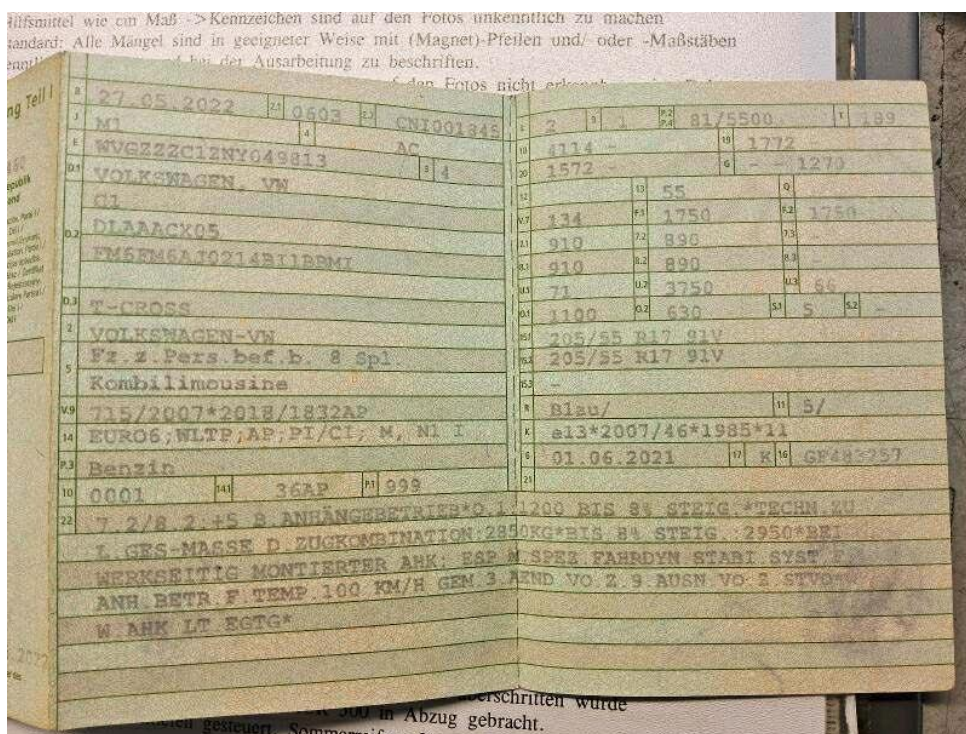 Hilfsmittel wie cm Maß ->Kennzeichen sind auf den Fotos unkenntlich zu machen
tandard: Alle Mängel sind in geeigneter Weise mit (Magnet)-Pfeilen und/ oder -Maßstäben
bei der Ausarbeitung zu beschriften.
den Fotos nicht
ng Teil I
B 27.05.2022 2.1 0603 2.2 CNI001345
J M1 4 AC
E WVGZZZC1ZNY049813 3 4
D.1 VOLKSWAGEN, VW
C1
D.2 DLAAACX05
FM6FM6AJ0214BI1BBMI
D.3 T-CROSS
2 VOLKSWAGEN-VW
5 Fz.z.Pers.bef.b. 8 Spl.
Kombilimousine
V.9 715/2007*2018/1832AP
14 EURO6;WLTP;AP;PI/CI; M, N1 I
P.3 Benzin
10 0001 14.1 36AP P.1 999
L 2 9 1 P.2 P.4 81/5500 T 189
18 4114 - 19 1772 -
20 1572 - G - 1270
12 13 55 Q
V.7 134 F.1 1750 F.2 1750
7.1 910 7.2 890 7.3 -
8.1 910 8.2 890 8.3 -
U.1 71 U.2 3750 U.3 66
O.1 1100 O.2 630 S.1 5 S.2 -
15.1 205/55 R17 91V
15.2 205/55 R17 91V
15.3 -
R Blau/ 11 5/
K e13*2007/46*1985*11
6 01.06.2021 17 K 16 GF483257
21
22 7.2/8.2:+5 B.ANHÄNGEBETRIEB*O.1:1200 BIS 8% STEIG.*TECHN.ZU
L.GES-MASSE D.ZUGKOMBINATION:2850KG*BIS 8% STEIG.:2950*BEI
WERKSEITIG MONTIERTER AHK: ESP M.SPEZ.FAHRDYN.STABI.SYST.F.
ANH.BETR.F.TEMP.100 KM/H GEM.3.AEND.VO.Z.9.AUSN.VO.Z.STVO*
W.AHK LT.EGTG*
überschritten wurde
in Abzug gebracht.
gesteuert.